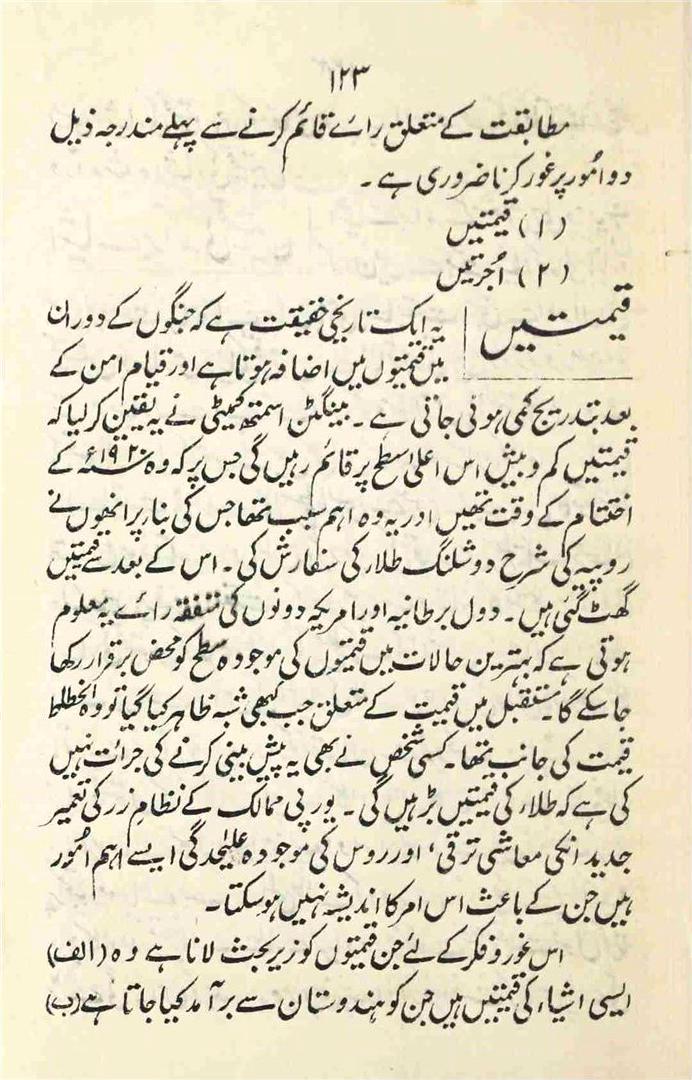 ۱۲۳
مطابقت کے متعلق رائے قائم کرنے سے پہلے مندرجہ ذیل
دو امُور پر غور کرنا ضروری ہے ۔
(۱) قیمتیں
(۲) اُجرتیں
قیمتیں
یہ ایک تاریخی حقیقت ہے کہ جنگوں کے دوران
میں قیمتوں میں اضافہ ہوتا ہے اور قیام امن کے
بعد بتدریج کمی ہوتی جاتی ہے ۔ بینگٹن اسمتھ کمیٹی نے یہ یقین کر لیا کہ
قیمتیں کم و بیش اس اعلیٰ سطح پر قائم رہیں گی جس پر کہ وہ ۱۹۲۰ء کے
اختتام کے وقت تھیں اور یہ وہ اہم سبب تھا جس کی بنار پر انھوں نے
روپیہ کی شرح دو شلنگ طلار کی سفارش کی ۔ اس کے بعد سے قیمتیں
گھٹ گئی ہیں ۔ دول برطانیہ اور امریکہ دونوں کی متفقہ رائے یہ معلوم
ہوتی ہے کہ بہترین حالات میں قیمتوں کی موجودہ سطح کو محض برقرار رکھا
جا سکے گا ۔ مستقبل میں قیمت کے متعلق جب کبھی شبہ ظاہر کیا گیا تو وہ انحطاط
قیمت کی جانب تھا ۔ کسی شخص نے بھی یہ پیش بینی کرنے کی جرائت نہیں
کی ہے کہ طلاء کی قیمتیں بڑہیں گی ۔ یورپی ممالک کے نظام زر کی تعمیر
جدید انکی معاشی ترقی، اور روس کی موجودہ علیٰحدگی ایسے اہم امُور
ہیں جن کے باعث اس امر کا اندیشہ نہیں ہو سکتا ۔
اس غور و فکر کے لئے جن قیمتوں کو زیر بحث لانا ہے وہ (الف)
ایسی اشیاء کی قیمتیں ہیں جن کو ہندوستان سے برآمد کیا جاتا ہے (ب)